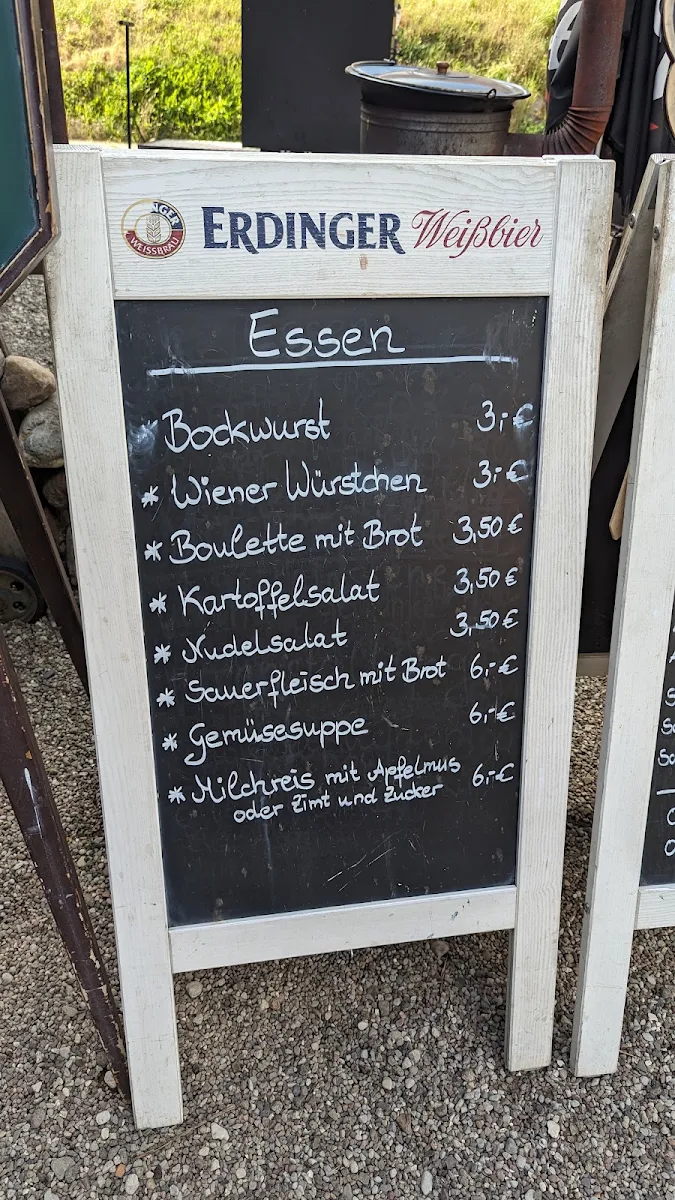 ERDINGER Weißbier
WEISSBRÄU
Essen
* Bockwurst 3,-€
* Wiener Würstchen 3,-€
* Boulette mit Brot 3,50 €
* Kartoffelsalat 3,50 €
* Nudelsalat 3,50 €
* Sauerfleisch mit Brot 6,-€
* Gemüsesuppe 6,-€
* Milchreis mit Apfelmus 6,-€
oder Zimt und Zucker